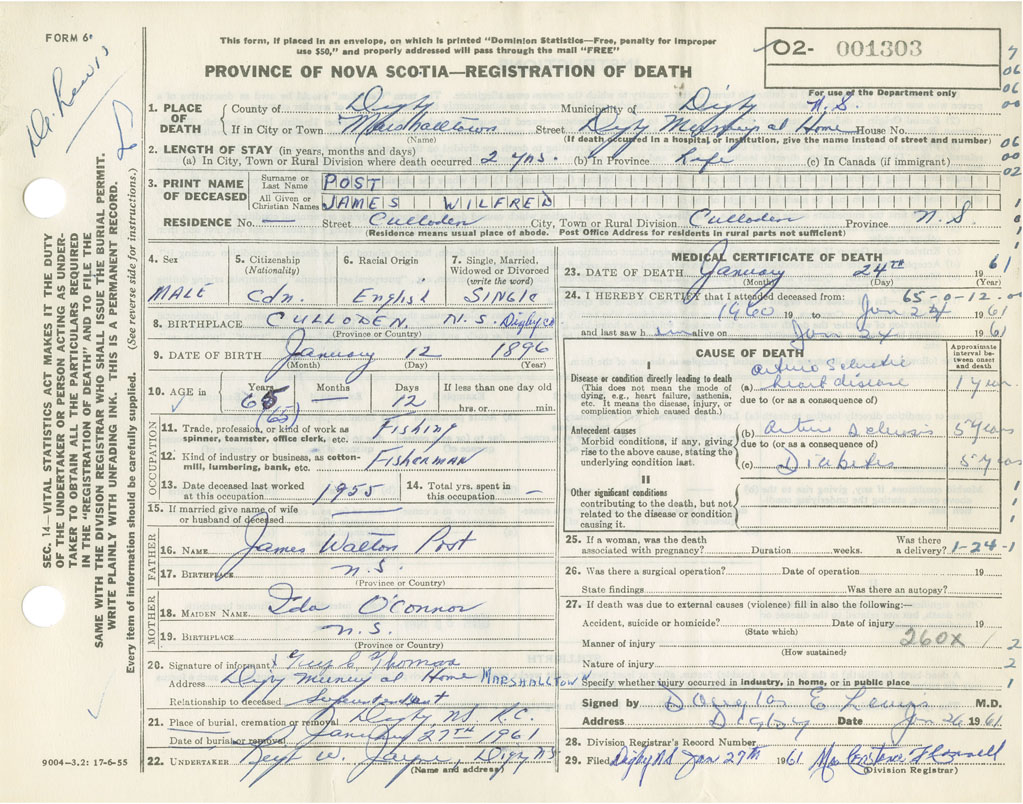 FORM 6
This form, if placed in an envelope, on which is printed "Dominion Statistics—Free, penalty for improper
use $50," and properly addressed will pass through the mail "FREE"
PROVINCE OF NOVA SCOTIA—REGISTRATION OF DEATH
02- 001303
For use of the Department only
Dr. Lewis
SEC. 14—VITAL STATISTICS ACT MAKES IT THE DUTY
OF THE UNDERTAKER OR PERSON ACTING AS UNDER-
TAKER TO OBTAIN ALL THE PARTICULARS REQUIRED
IN THE "REGISTRATION OF DEATH" AND TO FILE THE
SAME WITH THE DIVISION REGISTRAR WHO SHALL ISSUE THE BURIAL PERMIT.
WRITE PLAINLY WITH UNFADING INK. THIS IS A PERMANENT RECORD.
Every item of information should be carefully supplied. (See reverse side for instructions.)
1. PLACE OF DEATH County of Digby Municipality of Digby N.S.
If in City or Town Marshalltown Street Digby Municipal Home House No.
(Name) (If death occurred in a hospital or institution, give the name instead of street and number)
2. LENGTH OF STAY (in years, months and days)
(a) In City, Town or Rural Division where death occurred 2 yrs. (b) In Province Life (c) In Canada (if immigrant)
3. PRINT NAME OF DECEASED Surname or Last Name POST
All Given or Christian Names JAMES WILFRED
RESIDENCE No. — Street Culloden City, Town or Rural Division Culloden Province N.S.
(Residence means usual place of abode. Post Office Address for residents in rural parts not sufficient)
4. Sex 5. Citizenship (Nationality) 6. Racial Origin 7. Single, Married, Widowed or Divorced (write the word)
MALE Cdn. English SINGLE
8. BIRTHPLACE CULLODEN, N.S. Digby Co
(Province or Country)
9. DATE OF BIRTH January 12 1896
(Month) (Day) (Year)
10. AGE in Years Months Days If less than one day old
65 — 12 hrs. or min.
(65)
OCCUPATION
11. Trade, profession, or kind of work as spinner, teamster, office clerk, etc. Fishing
12. Kind of industry or business, as cotton-mill, lumbering, bank, etc. Fisherman
13. Date deceased last worked at this occupation 1955 14. Total yrs. spent in this occupation —
15. If married give name of wife or husband of deceased
FATHER
16. NAME James Walton Post
17. BIRTHPLACE N.S.
(Province or Country)
MOTHER
18. MAIDEN NAME Ida O'Connor
19. BIRTHPLACE N.S.
(Province or Country)
20. Signature of informant Guy C Thomas
Address Digby Municipal Home MARSHALLTOWN
Relationship to deceased Superintendent
21. Place of burial, cremation or removal Digby NS R.C.
Date of burial or removal January 27TH 1961
22. UNDERTAKER W. Jayne, Digby NS
(Name and address)
9004—3.2: 17-6-55
MEDICAL CERTIFICATE OF DEATH
23. DATE OF DEATH January 24TH 1961
(Month) (Day) (Year)
24. I HEREBY CERTIFY that I attended deceased from: 65-0-12.00
1960 19 to Jan 24 1961
and last saw him alive on Jan 24 1961
CAUSE OF DEATH
Approximate interval between onset and death
I
Disease or condition directly leading to death
(This does not mean the mode of dying, e.g., heart failure, asthenia, etc. It means the disease, injury, or complication which caused death.)
(a) heart disease 1 year
due to (or as a consequence of)
Antecedent causes
Morbid conditions, if any, giving rise to the above cause, stating the underlying condition last.
(b) 5 years
due to (or as a consequence of)
(c) Diabetes 5 years
II
Other significant conditions
contributing to the death, but not related to the disease or condition causing it.
25. If a woman, was the death associated with pregnancy? Duration weeks. Was there a delivery? 1-24-1
26. Was there a surgical operation? Date of operation 19
State findings Was there an autopsy?
27. If death was due to external causes (violence) fill in also the following:—
Accident, suicide or homicide? Date of injury 19
(State which)
Manner of injury 260X
(How sustained)
Nature of injury
Specify whether injury occurred in industry, in home, or in public place
Signed by Douglas E Lewis M.D.
Address Digby Date Jan 26 1961
28. Division Registrar's Record Number
29. Filed Digby NS Jan 27th 1961 Mrs Constance
(Division Registrar)